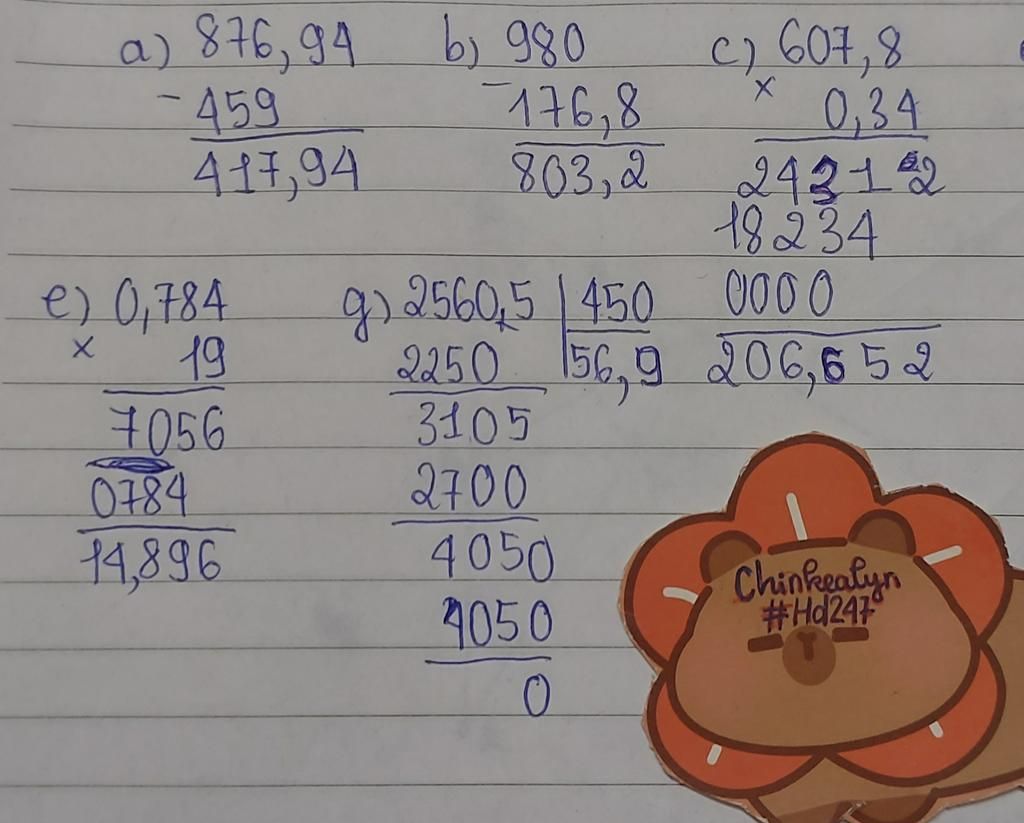 a) 876,94
- 459
417,94
b) 980
- 176,8
803,2
c) 607,8
x 0,34
24312
18234
0000
206,652
e) 0,784
x 19
7056
0784
14,896
g) 2560,5 | 450
2250 | 56,9
3105
2700
4050
4050
0
Chinkealyn
#Hd247